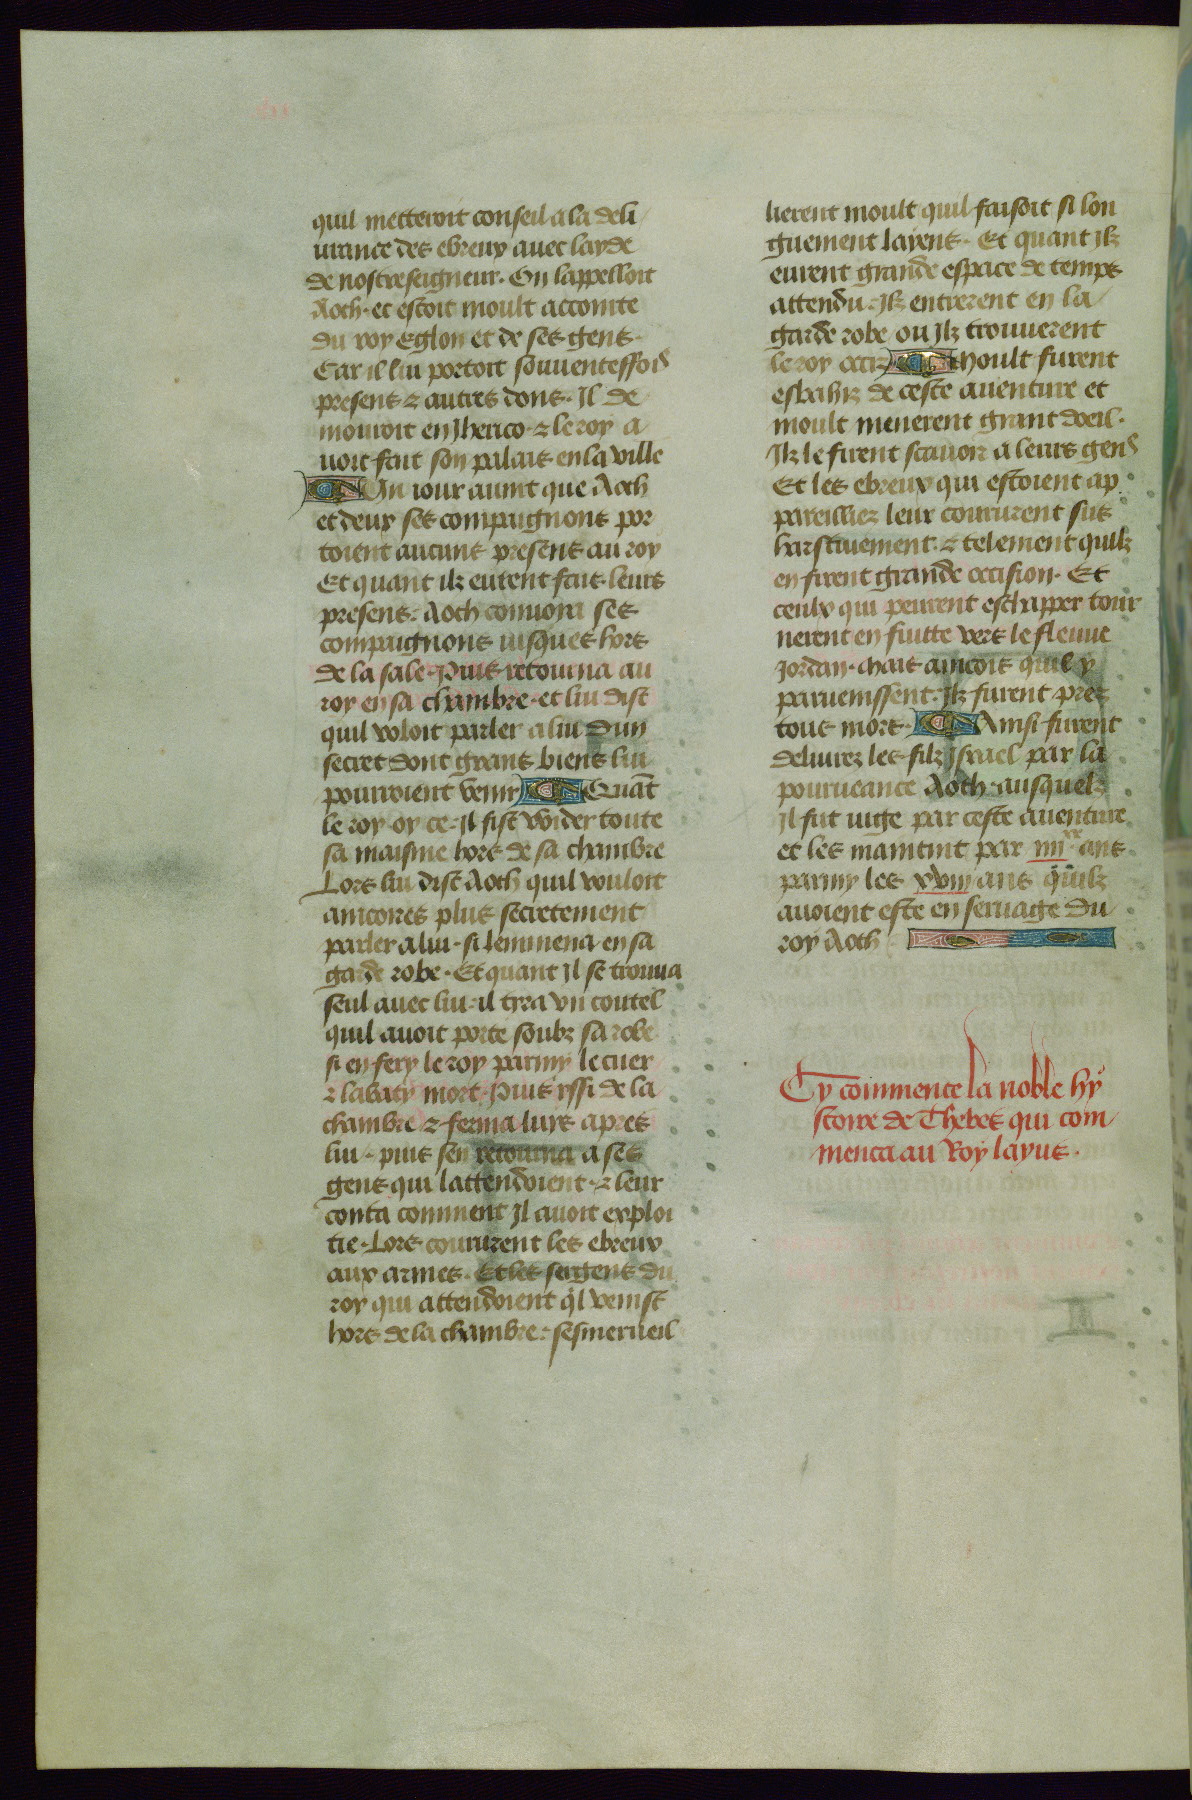 quil metteroit conseil a la deli
urance des ebreux auec layde
de nostreseigneur. On lappelloit
Aoth. et estoit moult accointe
du roy Eglon et de ses gens.
Car il lui portoit souuenteffois
presens & autres dons. Il de
mouroit en Jherico. & le roy a
uoit fait son palais en la ville
Un iour auint que Aoth
et deux ses compaignons por
toient aucuns presens au roy
Et quant ilz eurent fait leurs
presens: Aoth conuoia ses
compaignons iusques hors
de la sale. Puis retourna au
roy en sa chambre. et lui dist
quil voloit parler a lui dun
secret dont grans biens lui
pourroient venir Quāt
le roy oy ce. il fist voider toute
sa maisnie hors de sa chambre
Lors lui dist Aoth quil vouloit
ancores plus secretement
parler a lui. si lemmena en sa
garde robe. Et quant Il se trouua
seul auec lui. il tyra vn coutel
quil auoit porte soubz sa robe
si en fery le roy parmy le cuer
& labaty mort. Puis yssi de la
chambre & ferma luys apres
lui. puis sen retourna a ses
gens qui lattendoient. & leur
conta comment Il auoit exploi
tie. Lors coururent les ebreux
aux armes. Et les sergens du
roy qui attendoient ql venist
hors de la chambre: sesmerueil
lierent moult quil faisoit si lon
guement layens. Et quant Ilz
eurent grande espace de temps
attendu. Ilz entrerent en la
garde robe ou Ilz trouuerent
le roy occiz Moult furent
esbahiz de ceste auenture et
moult menerent grant doeil.
Ilz le firent scauoir a leurs gens
Et les ebreux qui estoient ap
pareilliez leur coururent sus
hastiuement. & telement quilz
en firent grande occision. Et
ceulx qui peurent eschapper tour
nerent en fuitte vers le fleuue
Jordan. Mais aincois quil y
paruenissent. Ilz furent prez
tous mors. Ainsi furent
deliurez les filz Israel par la
pourueance Aoth. ausquelz
Il fut iuge par ceste auenture
et les maintint par iiii xx ans
parmy les xviii ans quilz
auoient este en seruage du
roy Aoth
Cy commence la noble hy
stoire de Thebes qui com
menca au Roy layus.